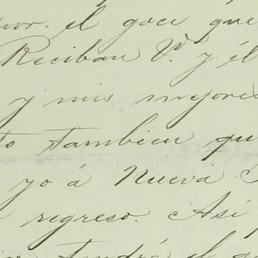 por el goce que
Reciban V.ˢ y él
y mis mejores
to tambien qu
yo á Nueva
regreso. Así
tendré el